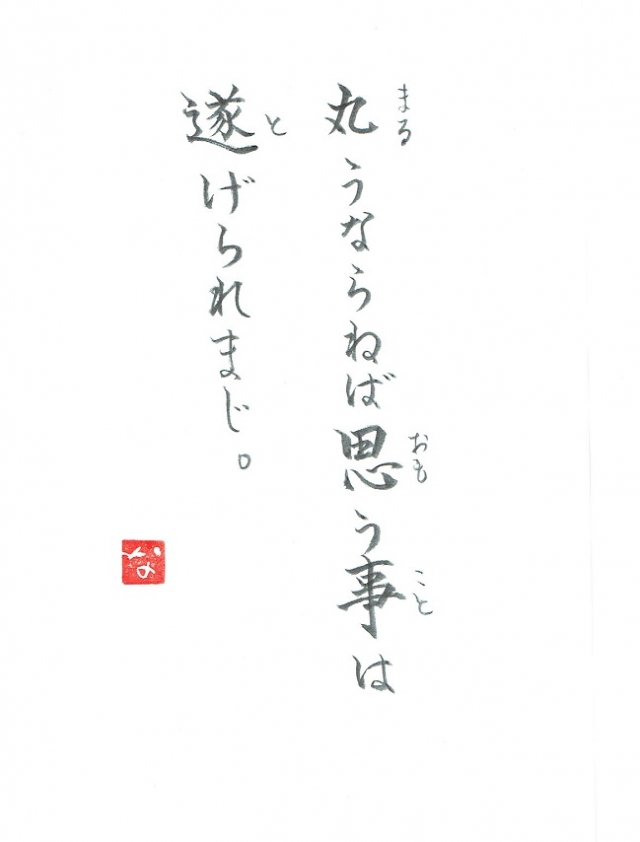 丸うならねば思う事は
まる
おも
こと
遂げられまじ。
と
な